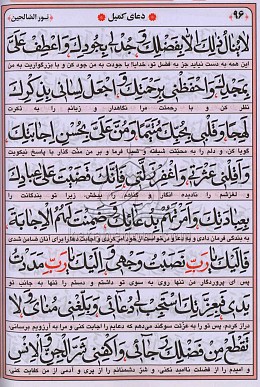 ۹۶ دعای کمیل نور الصالحین
لا یُنالُ ذٰلِكَ اِلّا بِفَضْلِكَ وَ جُدْ لی بِجُودِكَ وَ اعْطِفْ عَلَیَّ
این همه به دست نیاید جز به فضل تو، خدایا! با جودت به من جود کن و با بزرگواریت به من
بِمَجْدِكَ وَ احْفَظْنی بِرَحْمَتِكَ وَ اجْعَلْ لِسانی بِذِكْرِكَ
نظر کن و با رحمتت مرا نگاهدار و زبانم را به ذکرت
لَهِجًا وَ قَلْبی بِحُبِّكَ مُتَیَّمًا وَ مُنَّ عَلَیَّ بِحُسْنِ اِجابَتِكَ
گویا کن، و دلم را به محبتت شیفته و شیدا فرما و بر من منت گذار با پاسخ نیکویت
وَ اَقِلْنی عَثْرَتی وَ اغْفِرْ زَلَّتی فَاِنَّكَ قَضَیْتَ عَلی عِبادِكَ
و لغزشم را نادیده انگار و گناهم را ببخش، زیرا تو بندگانت را
بِعِبادَتِكَ وَ اَمَرْتَهُمْ بِدُعائِكَ وَ ضَمِنْتَ لَهُمُ الْاِجابَةَ
به بندگی فرمان دادی و به دعا و درخواست از خود امر کردی و اجابت دعا را برای آنان ضامن شدی
فَاِلَیْكَ یا رَبِّ نَصَبْتُ وَجْهی وَ اِلَیْكَ یا رَبِّ مَدَدْتُ
پس ای پروردگار من تنها روی به سوی تو داشتم و دستم را تنها به جانب تو
یَدی فَبِعِزَّتِكَ اسْتَجِبْ لی دُعائی وَ بَلِّغْنی مُنایَ وَ لا
دراز کردم، پس تو را به عزتت سوگند می‌دهم که دعایم را اجابت کنی و مرا به آرزویم برسانی
تَقْطَعْ مِنْ فَضْلِكَ رَجائی وَ اكْفِنی شَرَّ الْجِنِّ وَ الْاِنْسِ
و امیدم را از فضلت ناامید نکنی، و شر دشمنانم را از پری و آدمی از من کفایت کنی